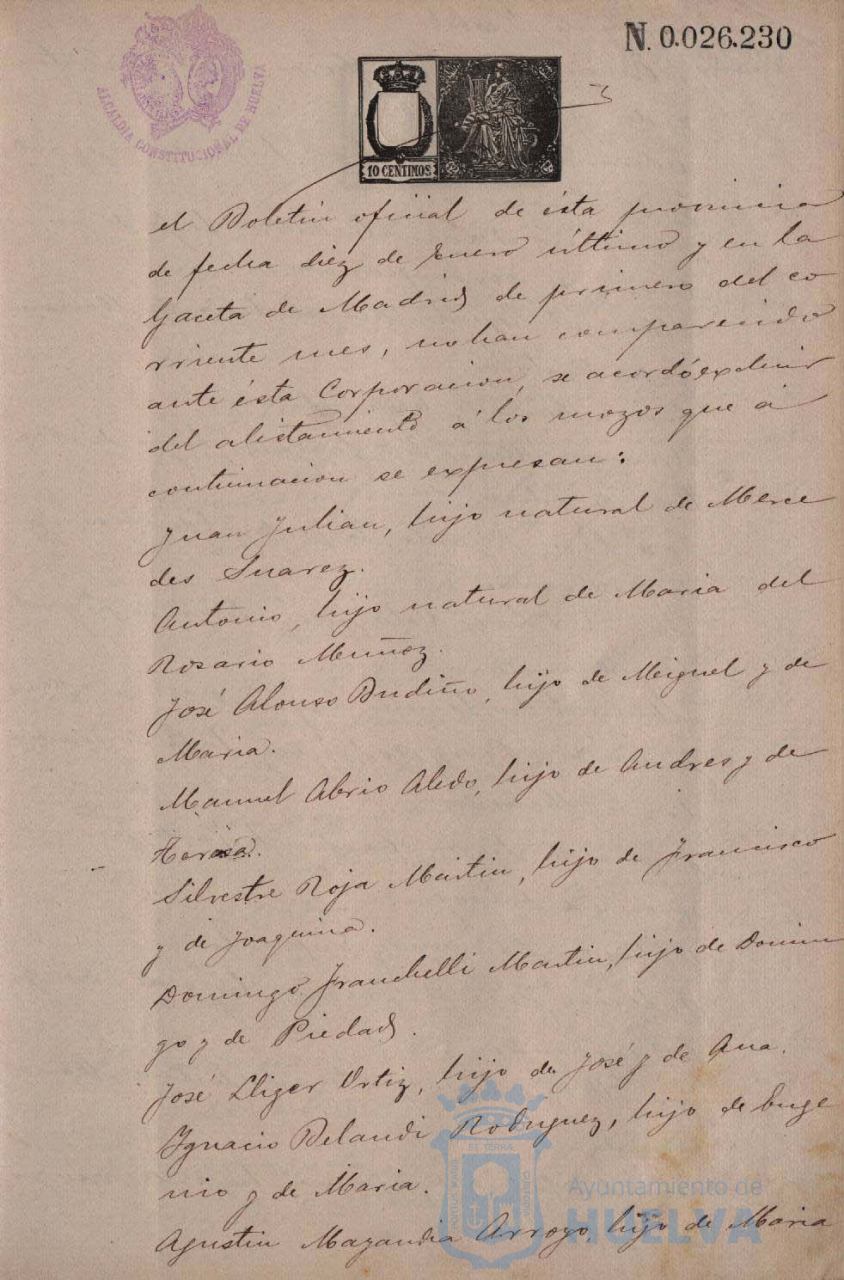 N. 0.026.230
ALCALDIA CONSTITUCIONAL DE HUELVA
10 CENTIMOS
el Boletin oficial de ésta provincia
de fecha diez de Enero último y en la
Gaceta de Madrid de primero del co
rriente mes, no han comparecido
ante ésta Corporacion, se acordó excluir
del alistamiento á los mozos que á
continuacion se expresan:
Juan Julian, hijo natural de Merce
des Suarez.
Antonio, hijo natural de Maria del
Rosario Muñoz.
José Alonso Budiño, hijo de Miguel y de
Maria.
Manuel Abrio Aledo, hijo de Andres y de
Teresa.
Silvestre Roja Martin, hijo de Francisco
y de Joaquina.
Domingo Franchelli Martin, hijo de Domin
go y de Piedad.
José Lliger Ortiz, hijo de José y de Ana.
Ignacio Belandi Rodriguez, hijo de Euge
nio y de Maria.
Agustin Magandia Arroyo, hijo de Maria
Ayuntamiento de
HUELVA